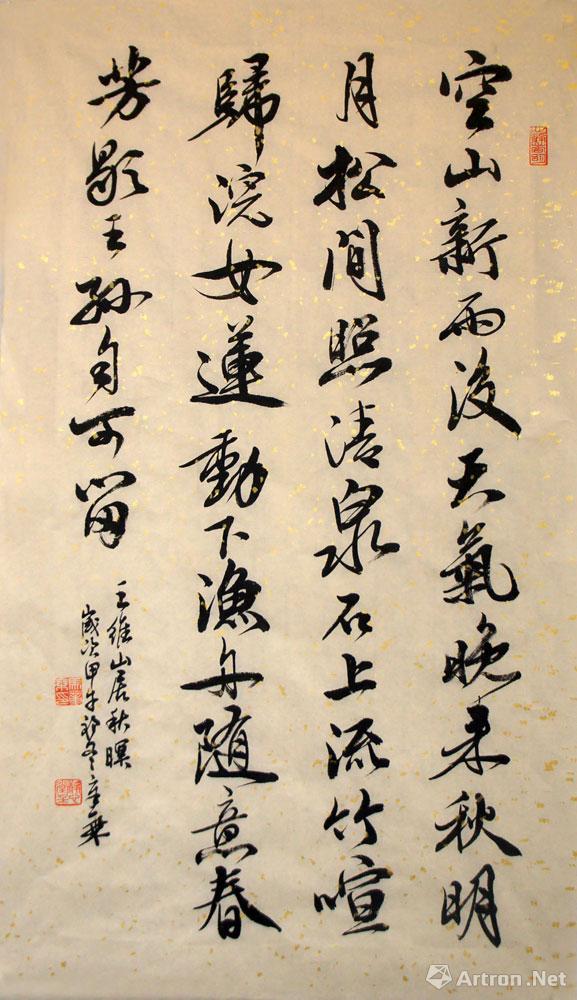 空山新雨後天氣晚来秋明
月松間照清泉石上流竹喧
歸浣女蓮動下漁舟随意春
芳歇王孫自可留
王維山居秋暝
歲次甲午初冬
Artron.Net